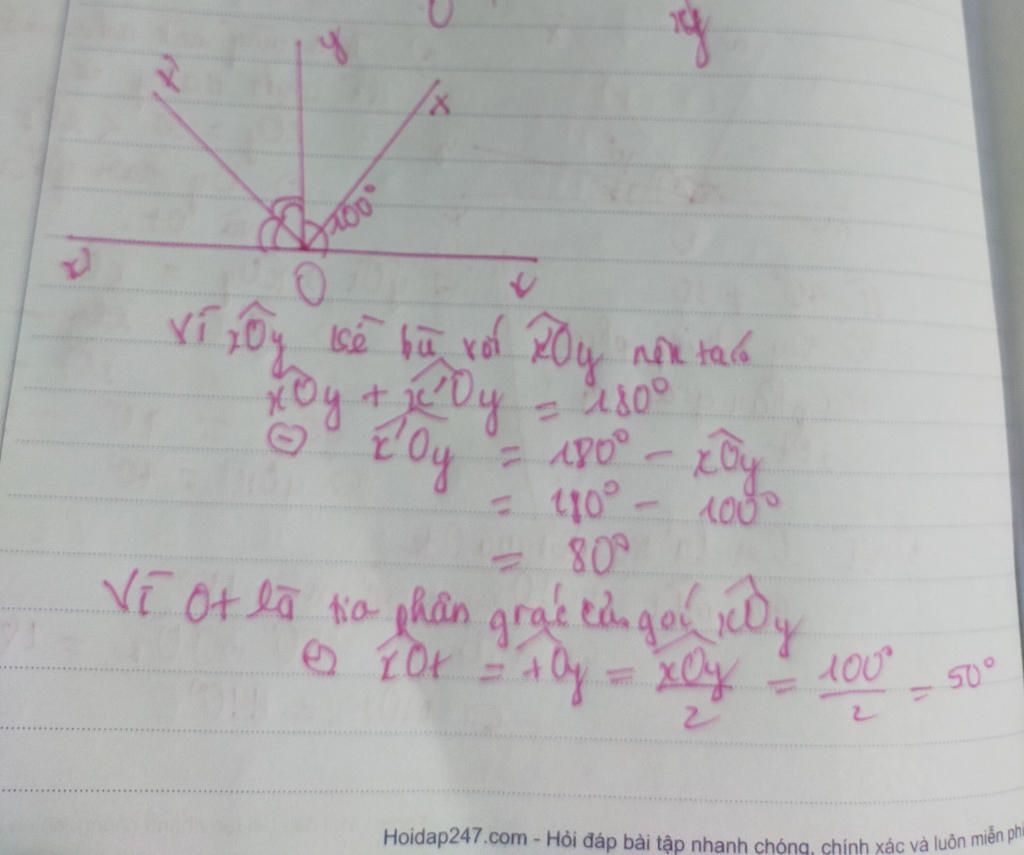 O xy
y
x
100°
O
Vì xÔy kề bù với x'Ôy nên ta có
xÔy + x'Ôy = 180°
x'Ôy = 180° - xÔy
= 180° - 100°
= 80°
Vì Ot là tia phân giác của góc xÔy
xÔt = tÔy = xÔy/2 = 100°/2 = 50°
Hoidap247.com - Hỏi đáp bài tập nhanh chóng, chính xác và luôn miễn phí